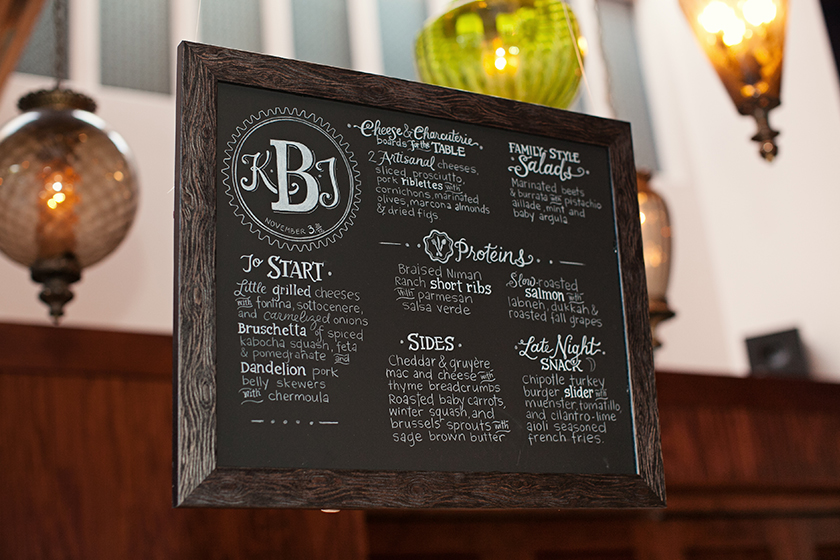 K·B·J
NOVEMBER 3
Cheese & Charcuterie
boards for the TABLE
2 Artisanal cheeses,
sliced prosciutto,
pork riblettes with
cornichons, marinated
olives, marcona almonds
& dried figs
FAMILY STYLE
Salads
Marinated beets
& burrata with pistachio
aillade, mint and
baby argula
Proteins
Braised Niman
Ranch short ribs
with parmesan
salsa verde
Slow-roasted
salmon with
labneh, dukkah &
roasted fall grapes
To START
Little grilled cheeses
with fontina, sottocenere,
and carmelized onions
Bruschetta of spiced
kabocha squash, feta
& pomegranate and
Dandelion pork
belly skewers
with chermoula
·SIDES·
Cheddar & gruyère
mac and cheese with
thyme breadcrumbs
Roasted baby carrots,
winter squash, and
brussels sprouts with
sage brown butter
·Late Night·
SNACK
Chipotle turkey
burger slider with
muenster, tomatillo,
and cilantro-lime
aioli seasoned
french fries.